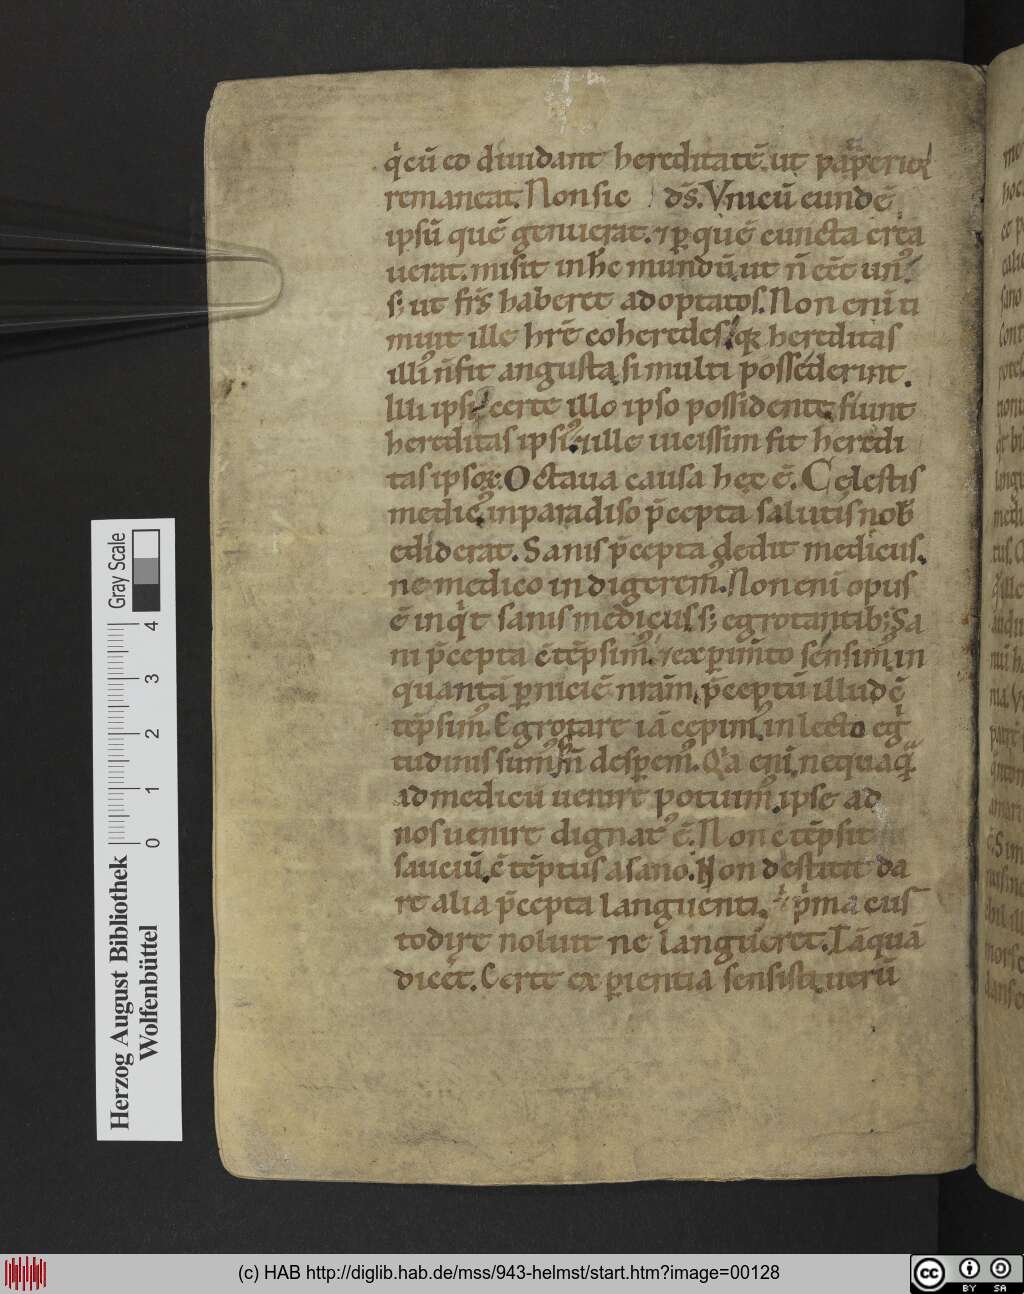 q̇ cū eo diuidant hereditatē. ut pauperior
remaneat. Non sic d̄s. Vnicū eundē
ipsū quē genuerat. ⁊ ꝑ quē cuncta crea
uerat. misit in hc̄ mundū. ut n̄ eēt un᷒.
s; ut fr̄s haberet adoptatos. Non eni ti
muit ille hr̄e coheredes. q̇ hereditas
illi᷒ n̄ fit angusta. si multi possederint.
Illi ipsi certe illo ipso possidente. fiunt
hereditas ipsi᷒. ⁊ ille uicissim fit heredi
tas ipsoꝝ. Octaua causa hec ē. Celestis
medic᷒. in paradiso p̄cepta salutis nob̄
ediderat. Sanis p̄cepta dedit medicus.
ne medico indigerem᷒. Non eni opus
ē inq̇t sanis medicus. s; egrotantib;. Sa
ni p̄cepta ctēpsim᷒. ⁊ exꝑim̄to sensim᷒. in
quantā ꝑniciē nr̄am. p̄ceptū illud c̄
tēpsim᷒. Egrotare iā cepim᷒. in lecto egͥ
tudinis sum᷒. s; n̄ desꝑem᷒. Qͥa eni nequaq̄
ad medicū uenire potuim᷒. ipse ad
nos uenire dignat᷒ ē. Non ctēpsit
sauciū. ctēptus a sano. Non destitit da
re alia p̄cepta languenti. q̇ pͥma cus
todire noluit ne langueret. Tāquā
dicēt. Certe exꝑientia sensisti. uerū
Herzog August Bibliothek
Wolfenbüttel
0 1 2 3 4
Gray Scale
(c) HAB http://diglib.hab.de/mss/943-helmst/start.htm?image=00128
cc BY SA